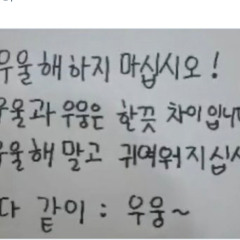 우울해하지 마십시오!
우울과 우웅은 한끗 차이입니
우울해 말고 귀여워지십시
다 같이 : 우웅~